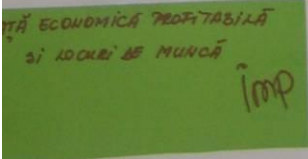 TĂ ECONOMICĂ PROFITABILĂ
SI LOCURI DE MUNCĂ
ÎMP